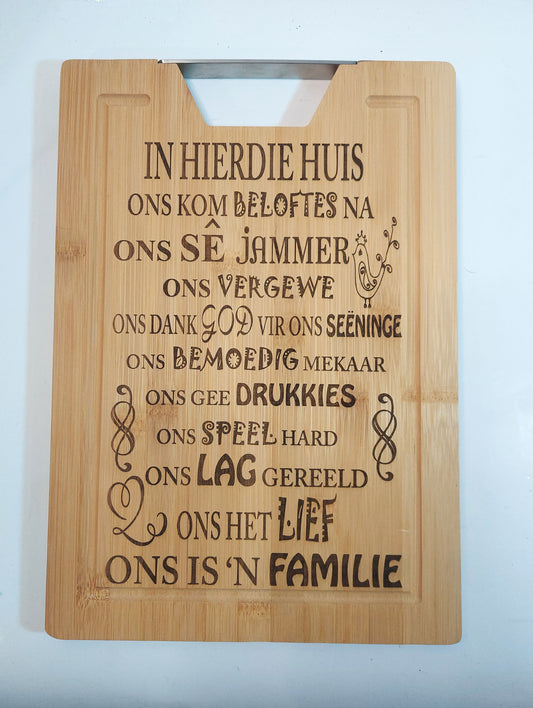 IN HIERDIE HUIS
ONS KOM BELOFTES NA
ONS SÊ JAMMER
ONS VERGEWE
ONS DANK GOD VIR ONS SEËNINGE
ONS BEMOEDIG MEKAAR
ONS GEE DRUKKIES
ONS SPEEL HARD
ONS LAG GEREELD
ONS HET LIEF
ONS IS 'N FAMILIE